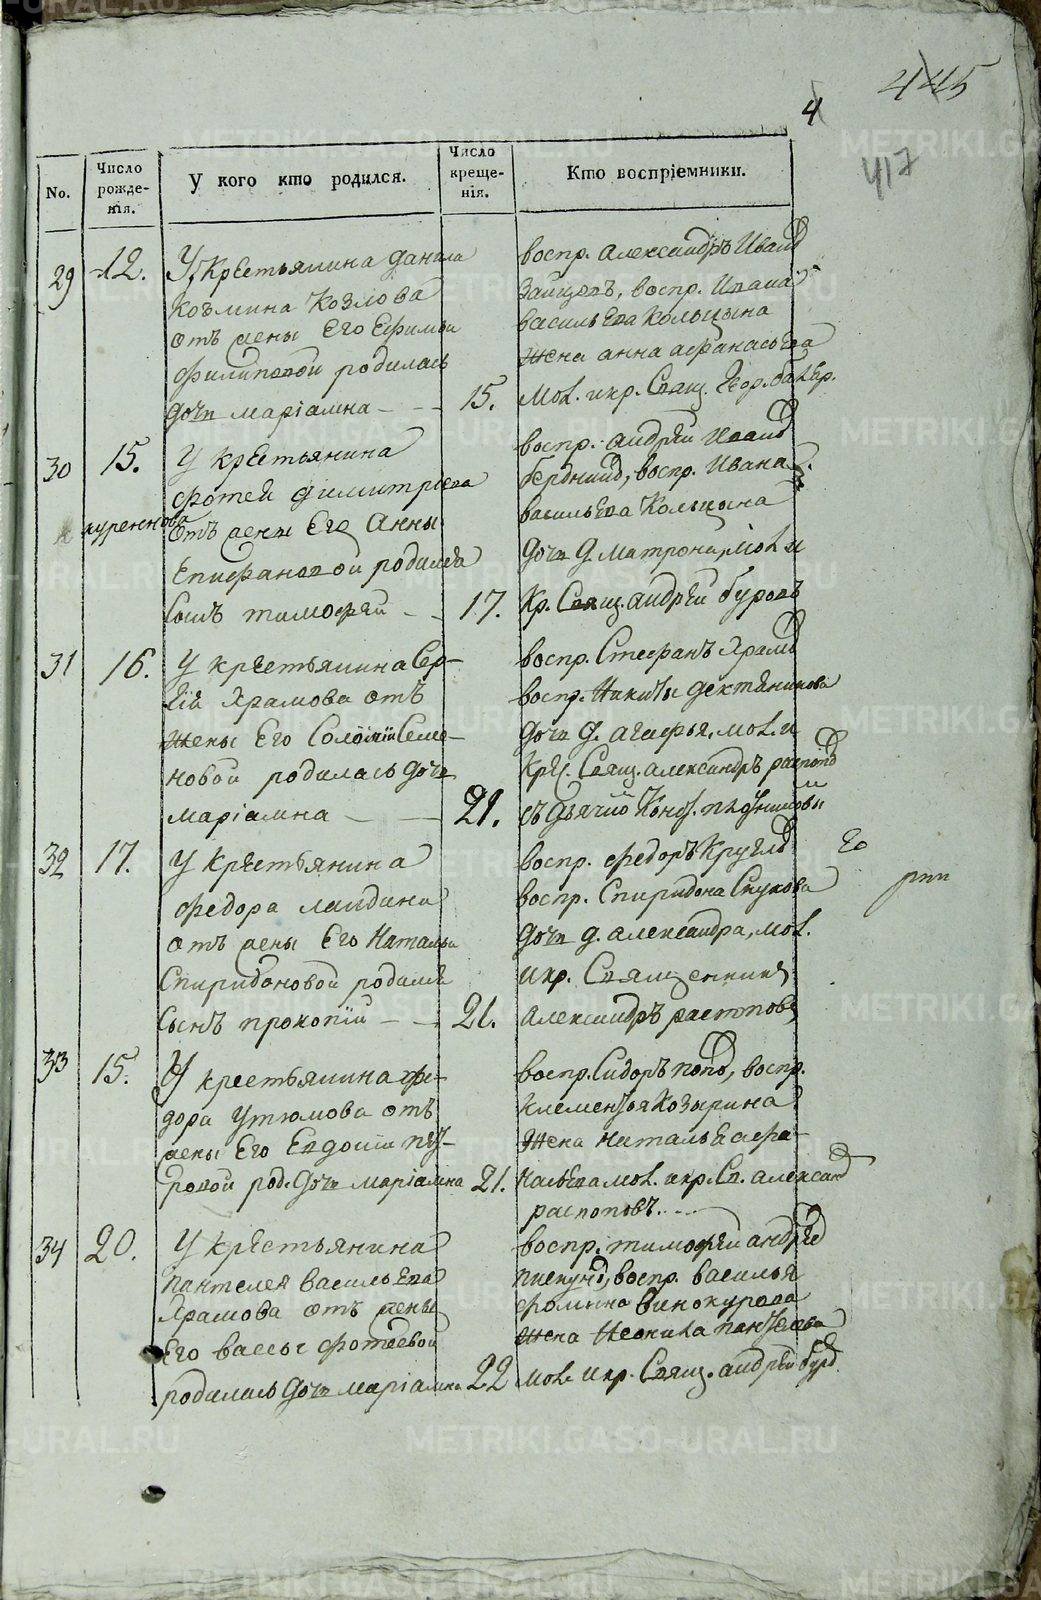 445
4
417
No.
Число рожде-нія.
У кого кто родился.
Число креще-нія.
Кто воспріемники.
29
12.
У Крестьянина данила
козьмина Козлова
отъ жены Его Ефимьи
филиповой родилась
дочь маріамна
15.
воспр. александръ Иванд
Зайцовъ, воспр. Ивана
васильева кольцына
жена анна афанасьева
Мол. и кр. Свящ.
30
15.
У крестьянина
фотей димитріева
куреннова
отъ жены Его Анны
Епифановой родился
сынъ тимофей
17.
воспр. андрей Иванд
воспр. Ивана
васильева Кольцына
дочь д. матрона, мол. и
Кр. Свящ. андрей буровъ
31
16.
У крестьянина Сер-
гія Храмова отъ
жены Его Соломіи Семе-
новой родилась дочь
маріамна
21.
воспр. Стефанъ Храмд
воспр. Никиты дектяникова
дочь д. агафья, мол. и
Крес. Свящ. александръ распопд
съ дьячко
32
17.
У крестьянина
федора
отъ жены Его Натальи
Спиридоновой родился
сынъ прокопій
21.
воспр. федоръ Кругл
воспр. Спиридона
дочь д. александра, мол.
и кр. Священникъ
Александръ распоповъ
33
15.
У крестьянина фе-
дора Утюмова отъ
жены Его Евдокіи пет-
ровой род. дочь маріамна
21.
воспр. Сидоръ попд, воспр.
Клементья Козырина
жена наталья афа-
насьева мол. и кр. Св. александ
распоповъ.
34
20.
У крестьянина
пантелея васильева
Храмова отъ жены
Его вассы фотеевой
родилась дочь маріамна
22
воспр. тимофей андреед
воспр. василья
фомина винокурова
жена
мол. и кр. Свящ. андрей бурд